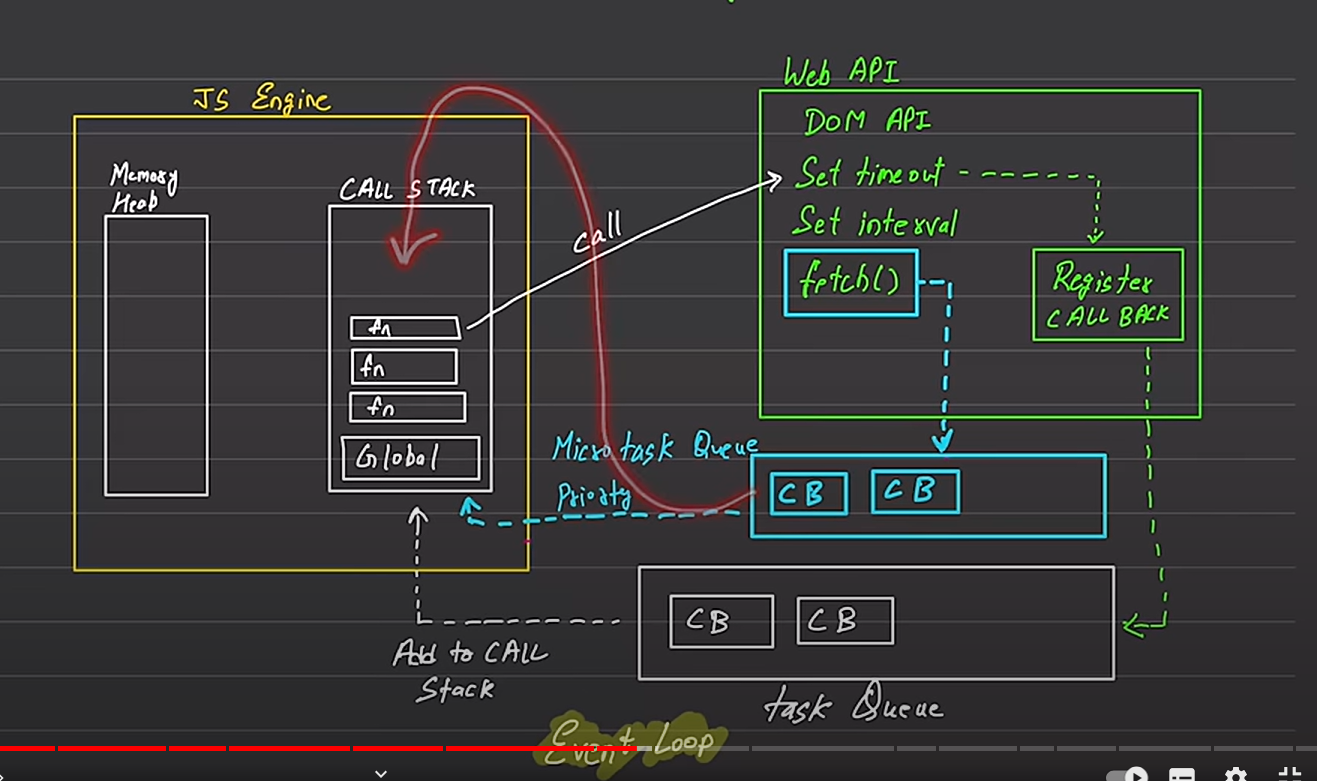 JS Engine
Memory
Heap
CALL STACK
fn
fn
fn
Global
call
Web API
DOM API
Set timeout
Set interval
fetch()
Register
CALL BACK
Micro task Queue
Priority
CB
CB
CB
CB
Add to CALL
Stack
task Queue
Event Loop